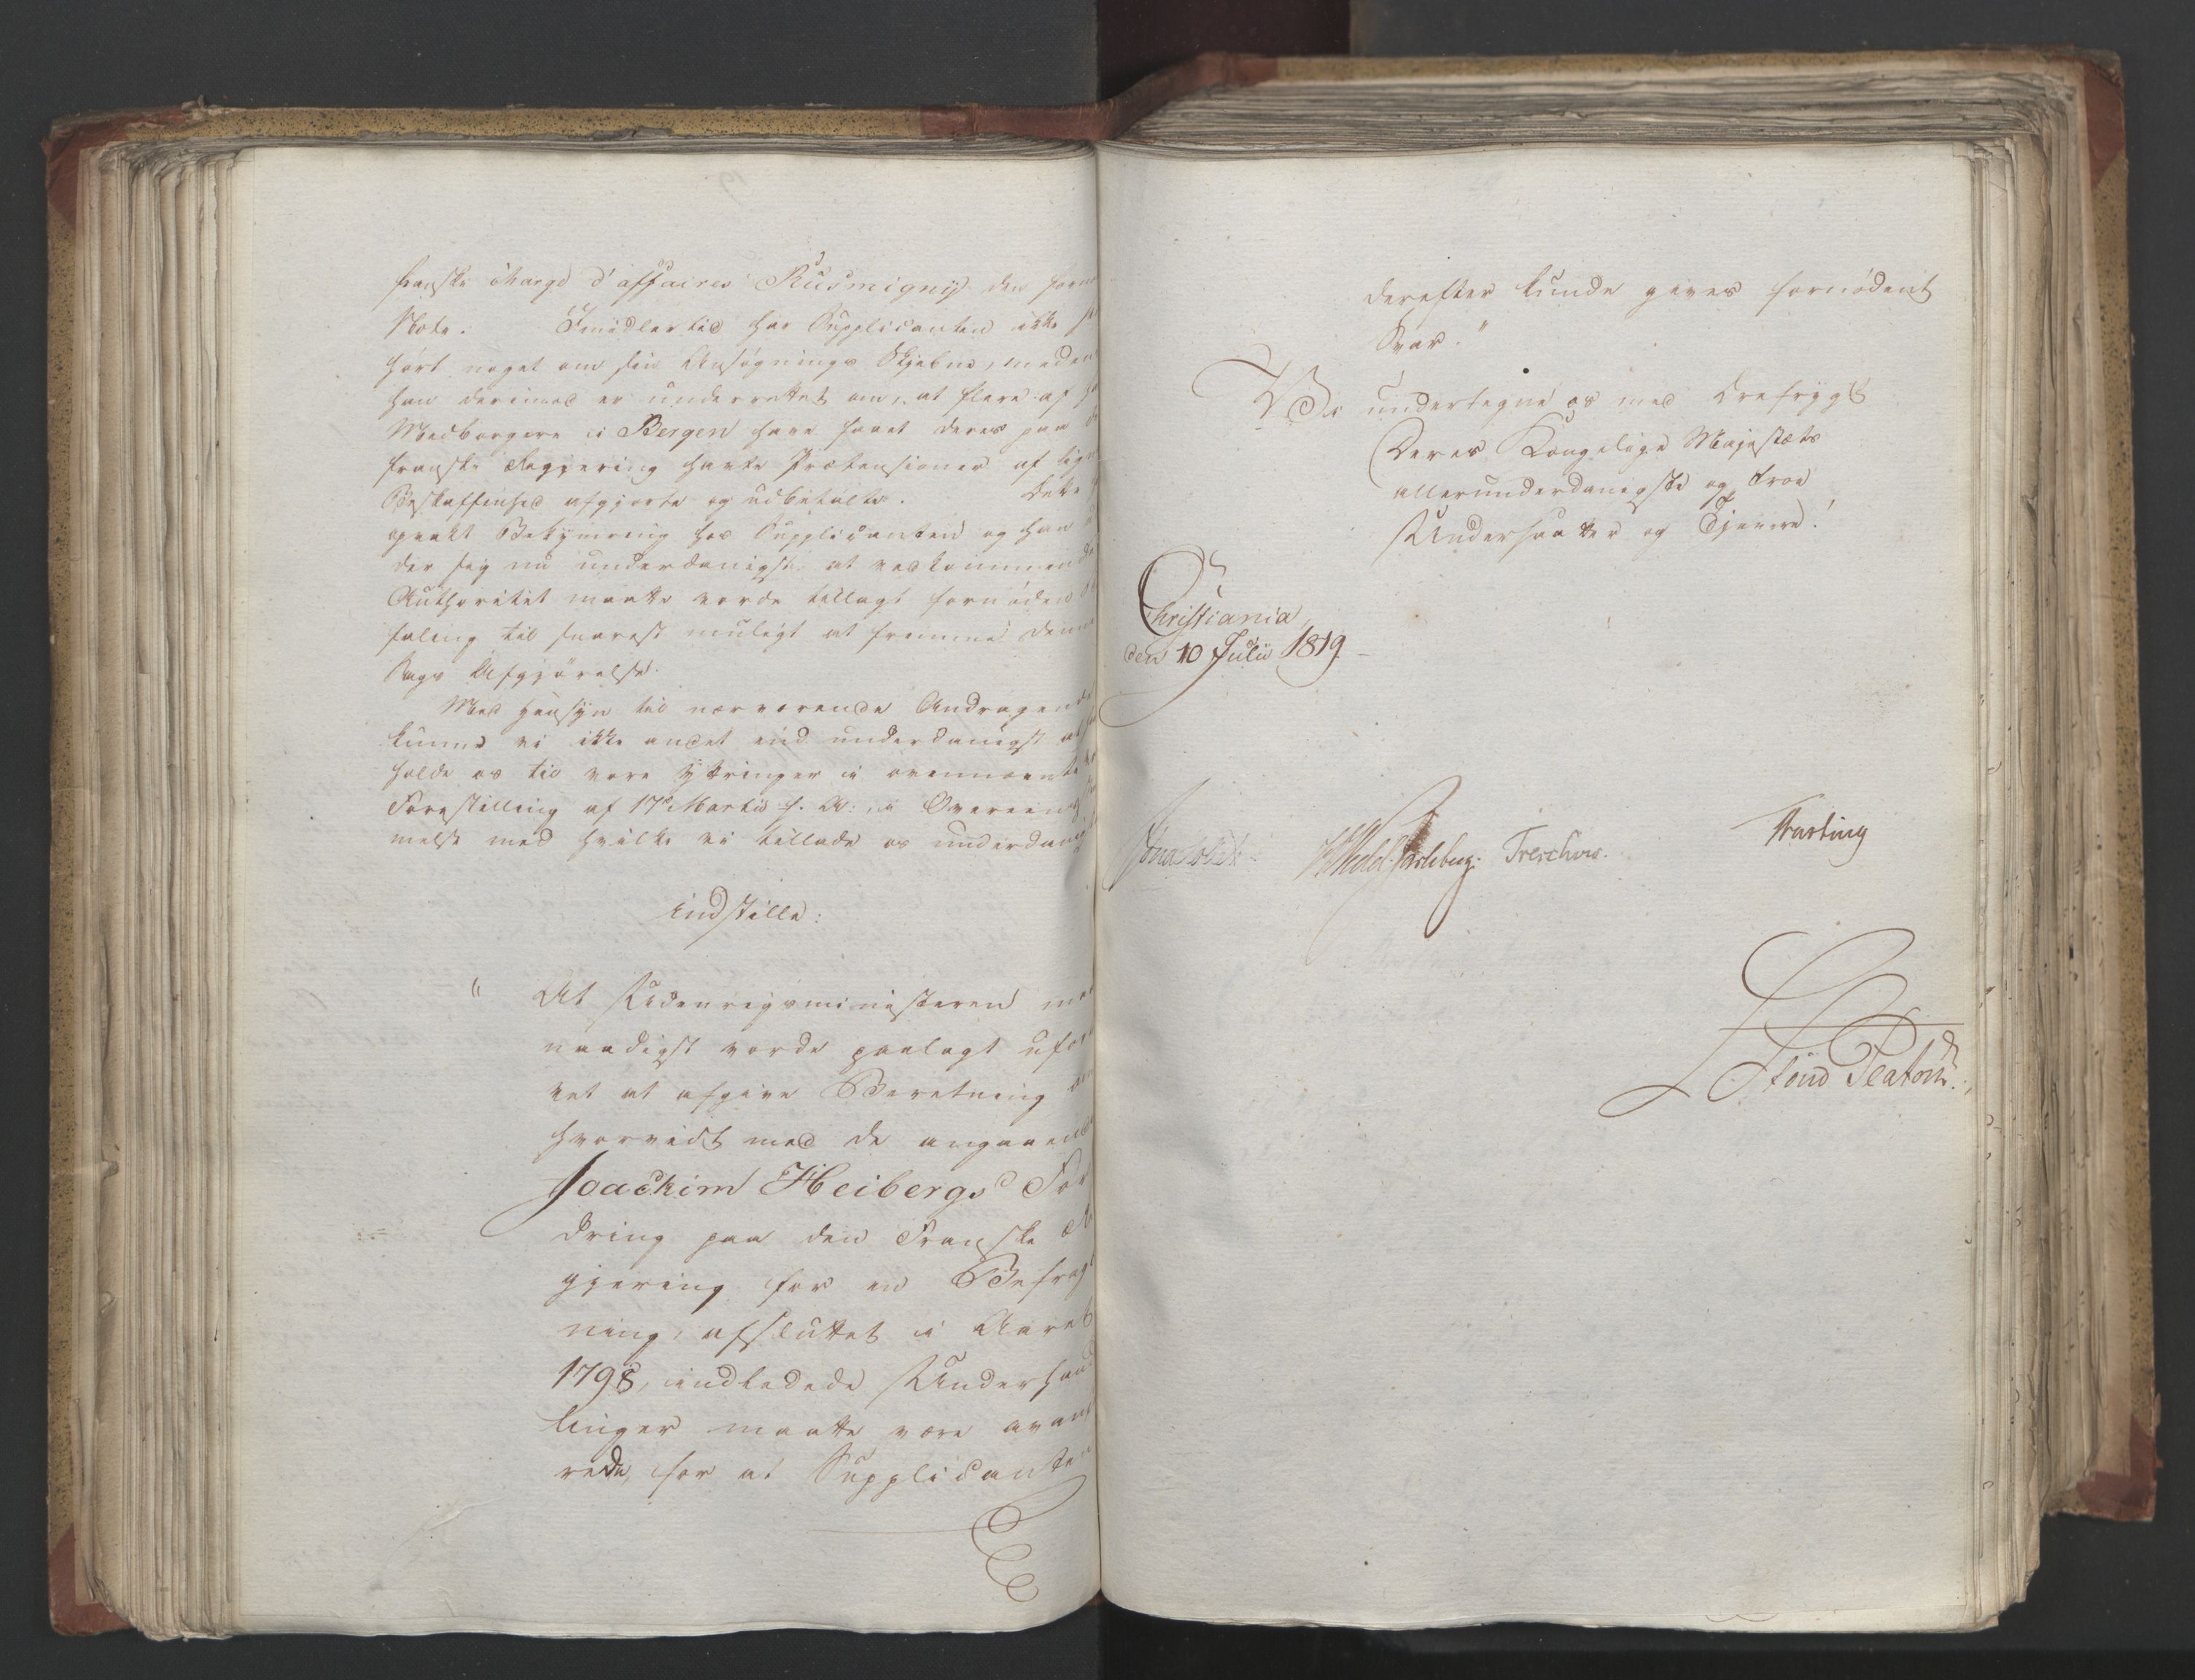 franske Chargé d'affaires Rusmigny den
Note. Imidlertid har Supplicanten ikke
hørt noget om sin Ansøgnings Skjebne, meden
han derimod er underrettet om, at flere af
Medborgere i Bergen have faaet deres paa
franske Regjering havte Prætensioner af lig
Beskaffenhed afgjorte og udbetalte. Dette
vakt Bekymring hos Supplicanten og han
der sig nu underdanigst at vedkommende
Authoritet maatte vorde tillagt fornøden
faling til snarest muligt at fremme denne
Sags Afgjørelse.
Med Hensyn til nærværende Andragende
kunne vi ikke andet end underdanigst at
holde os til vore Yttringer i ovennævnte
Forestilling af 17de Martii f. A. i Overeens
melse med hvilke vi tillade os underdanigst
indstille:
" At Udenrigsministeren maa
naadigst vorde paalagt ufor
vet at afgive Beretning om
hvorvidt med de angaaende
Joachim Heibergs For
dring paa den Franske Re
gjering for en Befragt
ning, afsluttet i Aaret
1798, indledede Underhand
linger maatte være avance
rede, for at Supplicanten
derefter kunde gives fornødent
Svar."
Vi undertegne os med Ærefrygt
Deres Kongelige Majestæts
allerunderdanigste og troe
Undersaatter og Tjenere!
Christiania,
den 10 Julii 1819.
Jonas Collett. H Wedel Jarlsberg. Treschow. Krasting
Stoud Platou.